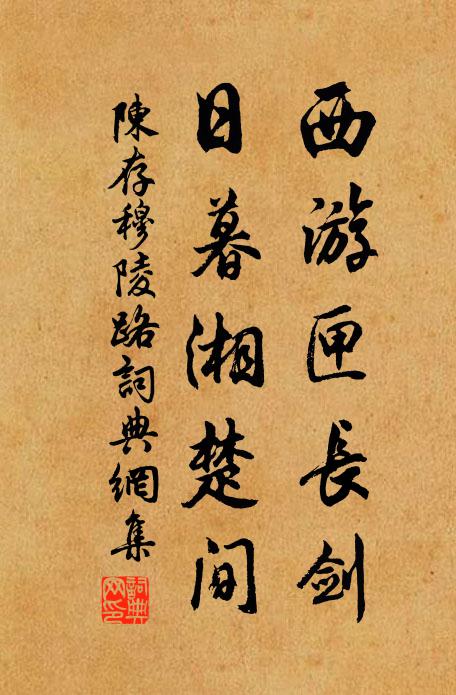 西游匣長劍
日暮湘楚間
陳存穆陵路詞典網集
詞典
网印